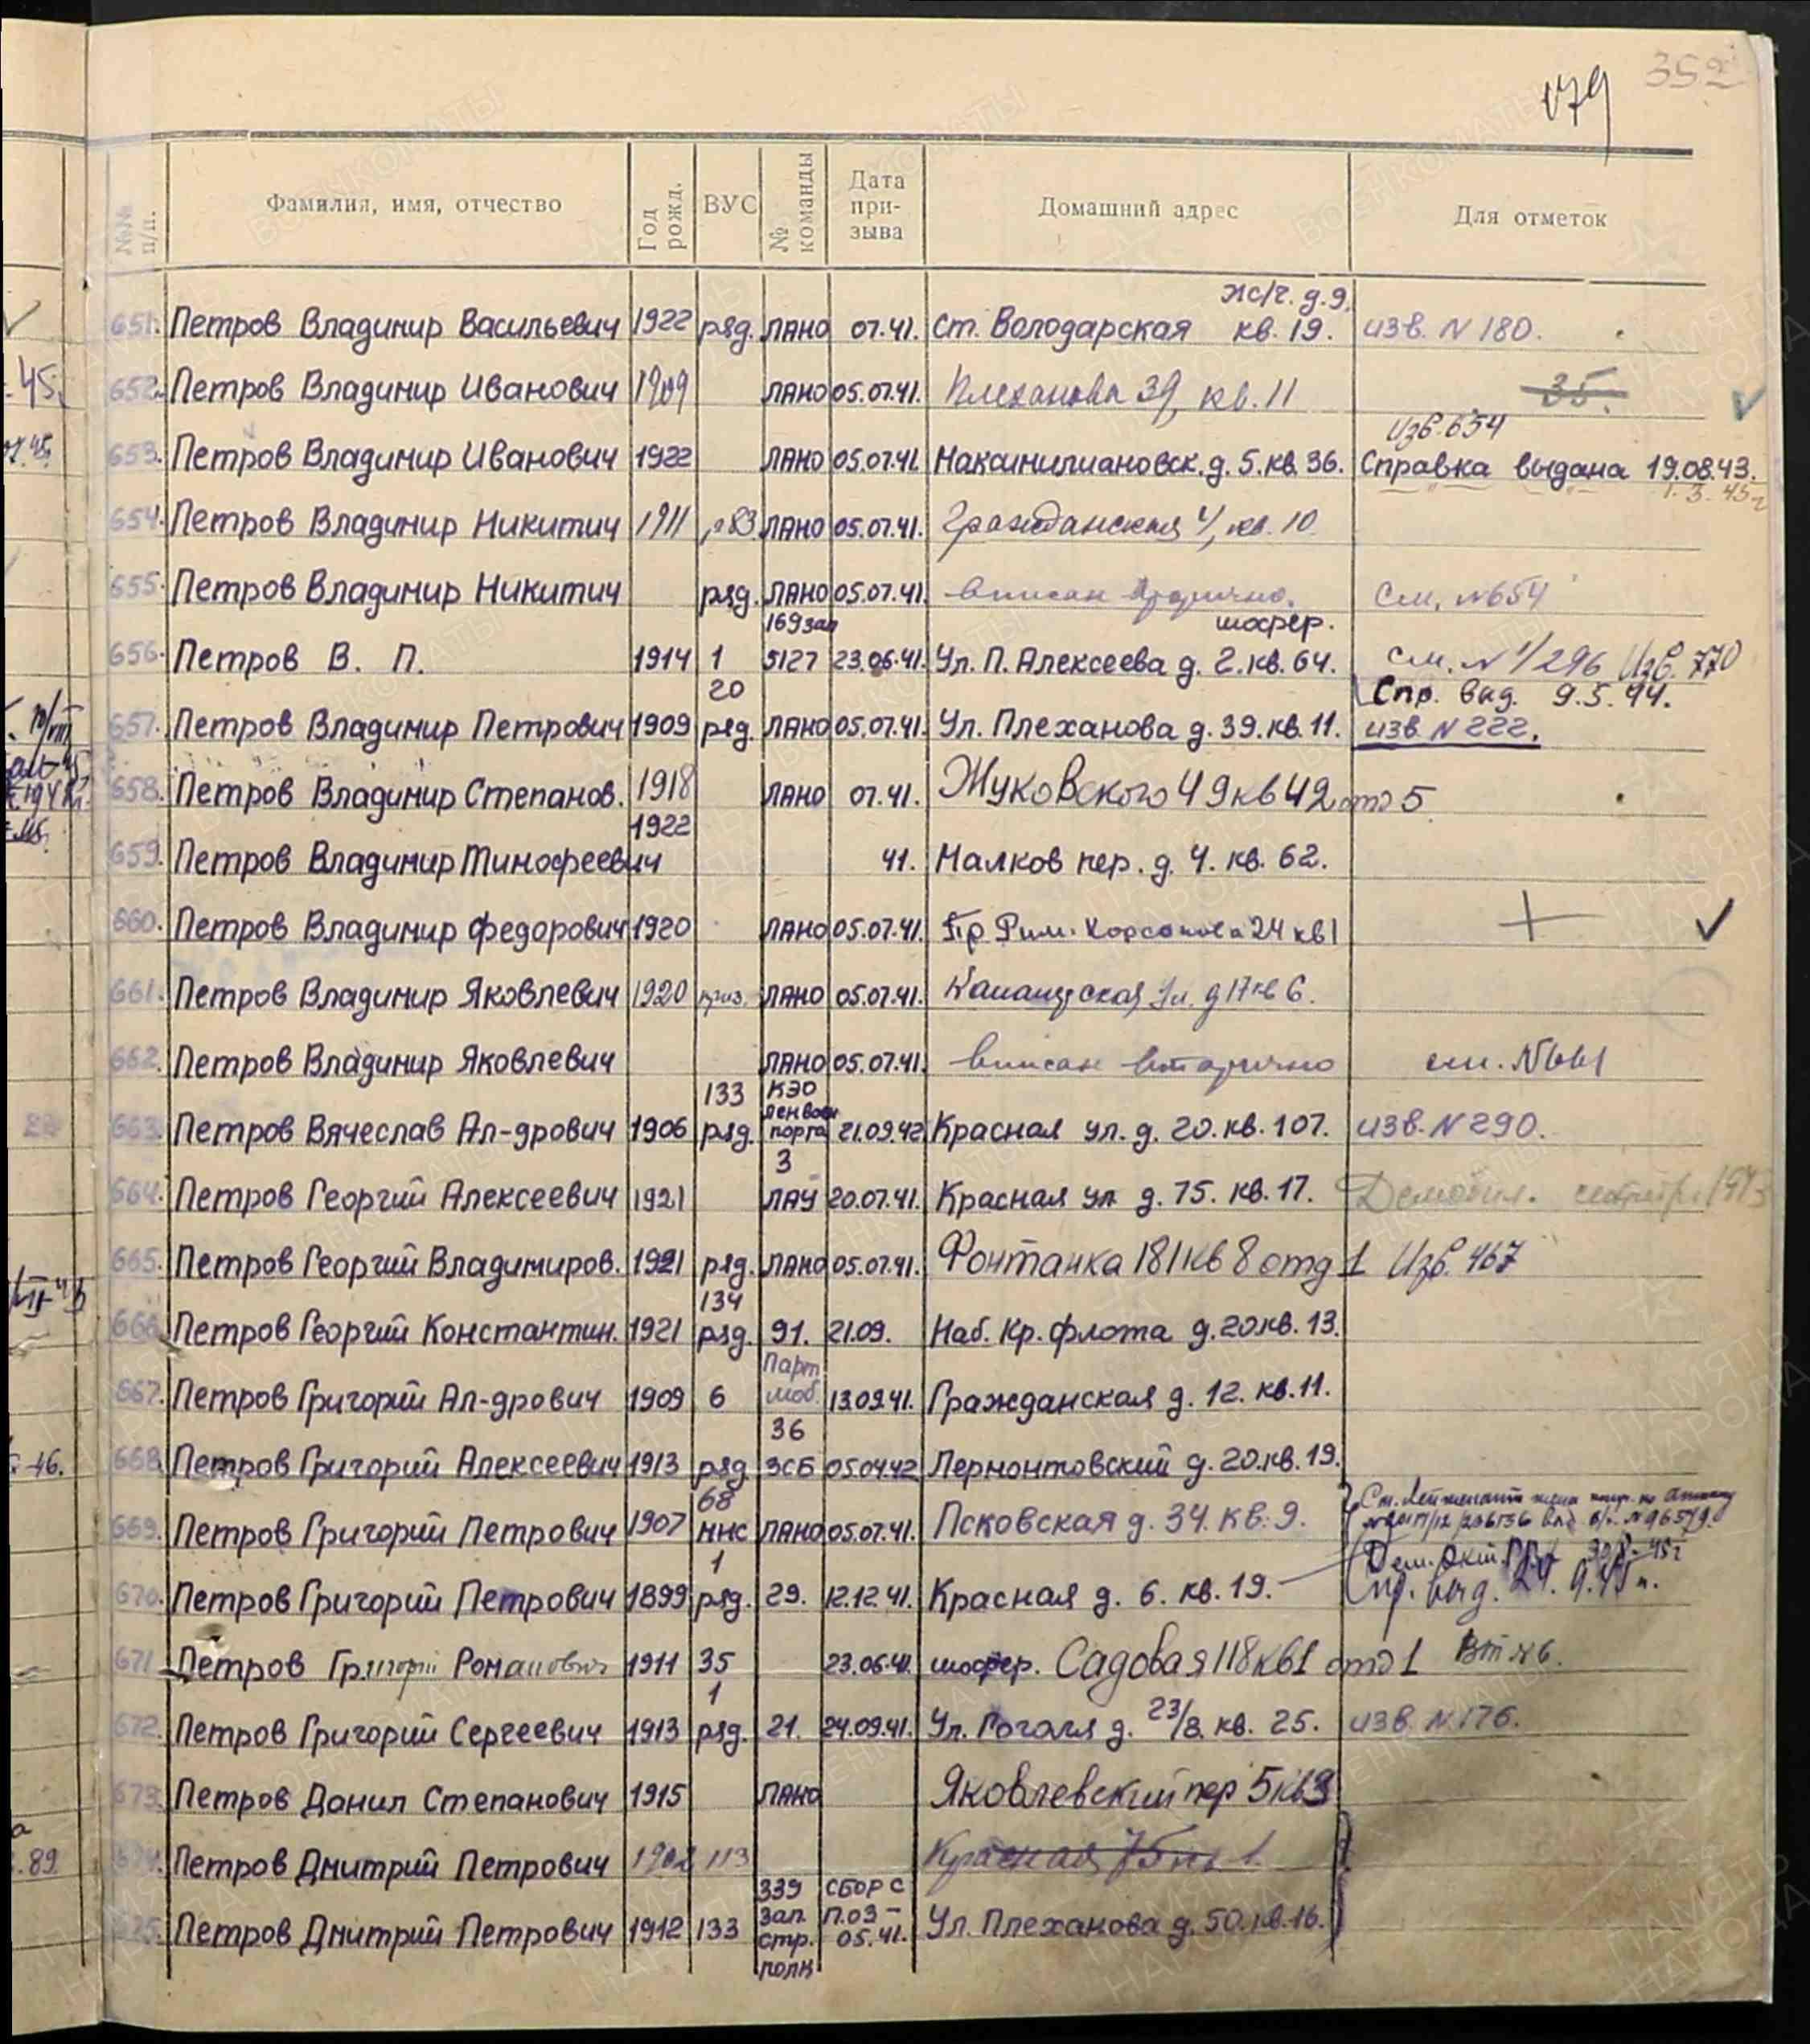 179 352
№№ п/п. Фамилия, имя, отчество Год рожд. ВУС № команды Дата при-зыва Домашний адрес Для отметок
ж/г. д.9.
651. Петров Владимир Васильевич 1922 ряд. ЛАНО 07.41. Ст. Володарская кв. 19. изв. N 180.
652. Петров Владимир Иванович 1909 ЛАНО 05.07.41. Плеханова 39, кв. 11 35.
Изв. 654
653. Петров Владимир Иванович 1922 ЛАНО 05.07.41. Максимилиановск. д. 5. кв. 36. Справка выдана 19.08.43.
1. 3. 45г
654. Петров Владимир Никитич 1911 ЛАНО 05.07.41. Гражданская 4, кв. 10
655. Петров Владимир Никитич ряд. ЛАНО 05.07.41. вписан вторично. см. N654
169 зап шофер.
656. Петров В. П. 1914 1 5127 23.06.41. Ул. П. Алексеева д. 2. кв. 64. см. N 1/296 Изв. 770
20 Спр. выд. 9.5.44.
657. Петров Владимир Петрович 1909 ряд. ЛАНО 05.07.41. Ул. Плеханова д. 39. кв. 11. изв. N 222.
658. Петров Владимир Степанов. 1918 ЛАНО 07.41. Жуковского 49 кв 42 отд 5
1922
659. Петров Владимир Тимофеевич 41. Малков пер. д. 4. кв. 62.
660. Петров Владимир Федорович 1920 ЛАНО 05.07.41. Пр Рим. Корсакова 24 кв 1
661. Петров Владимир Яковлевич 1920 ЛАНО 05.07.41. Канат ул. д 17 кв 6.
662. Петров Владимир Яковлевич ЛАНО 05.07.41. вписан вторично см. N661
133 КЭО
Ленвоен
663. Петров Вячеслав Ал-дрович 1906 ряд. порта 21.09.42 Красная ул. д. 20. кв. 107. изв. N 290.
3
664. Петров Георгий Алексеевич 1921 ЛАУ 20.07.41. Красная ул д. 75. кв. 17. Демобил.
665. Петров Георгий Владимиров. 1921 ряд. ЛАНО 05.07.41. Фонтанка 181 кв 8 отд 1 Изв. 467
134
666. Петров Георгий Константин. 1921 ряд. 91. 21.09. Наб. Кр. флота д. 20 кв. 13.
Парт
667. Петров Григорий Ал-дрович 1909 6 моб. 13.09.41. Гражданская д. 12. кв. 11.
36
668. Петров Григорий Алексеевич 1913 ряд ЗСБ 05.04.42 Лермонтовский д. 20. кв. 19.
68
669. Петров Григорий Петрович 1907 ННС ЛАНО 05.07.41. Псковская д. 34. кв. 9.
1
670. Петров Григорий Петрович 1899 ряд. 29. 12.12.41. Красная д. 6. кв. 19. выд. 24. 9.45 г.
671 Петров Григорий Романович 1911 35 23.06.41. шофер. Садовая 118 кв 1 отд 1
1
672. Петров Григорий Сергеевич 1913 ряд. 21. 24.09.41. Ул. Гоголя д. 23/8. кв. 25. изв. N 176.
673. Петров Данил Степанович 1915 ЛАНО Яковлевский пер 5 кв 9
674. Петров Дмитрий Петрович 1902 113 Красная 75 кв 1.
339 СБОР С
зап. П.03 –
675. Петров Дмитрий Петрович 1912 133 стр. 05.41. Ул. Плеханова д. 50. кв. 16.
полк